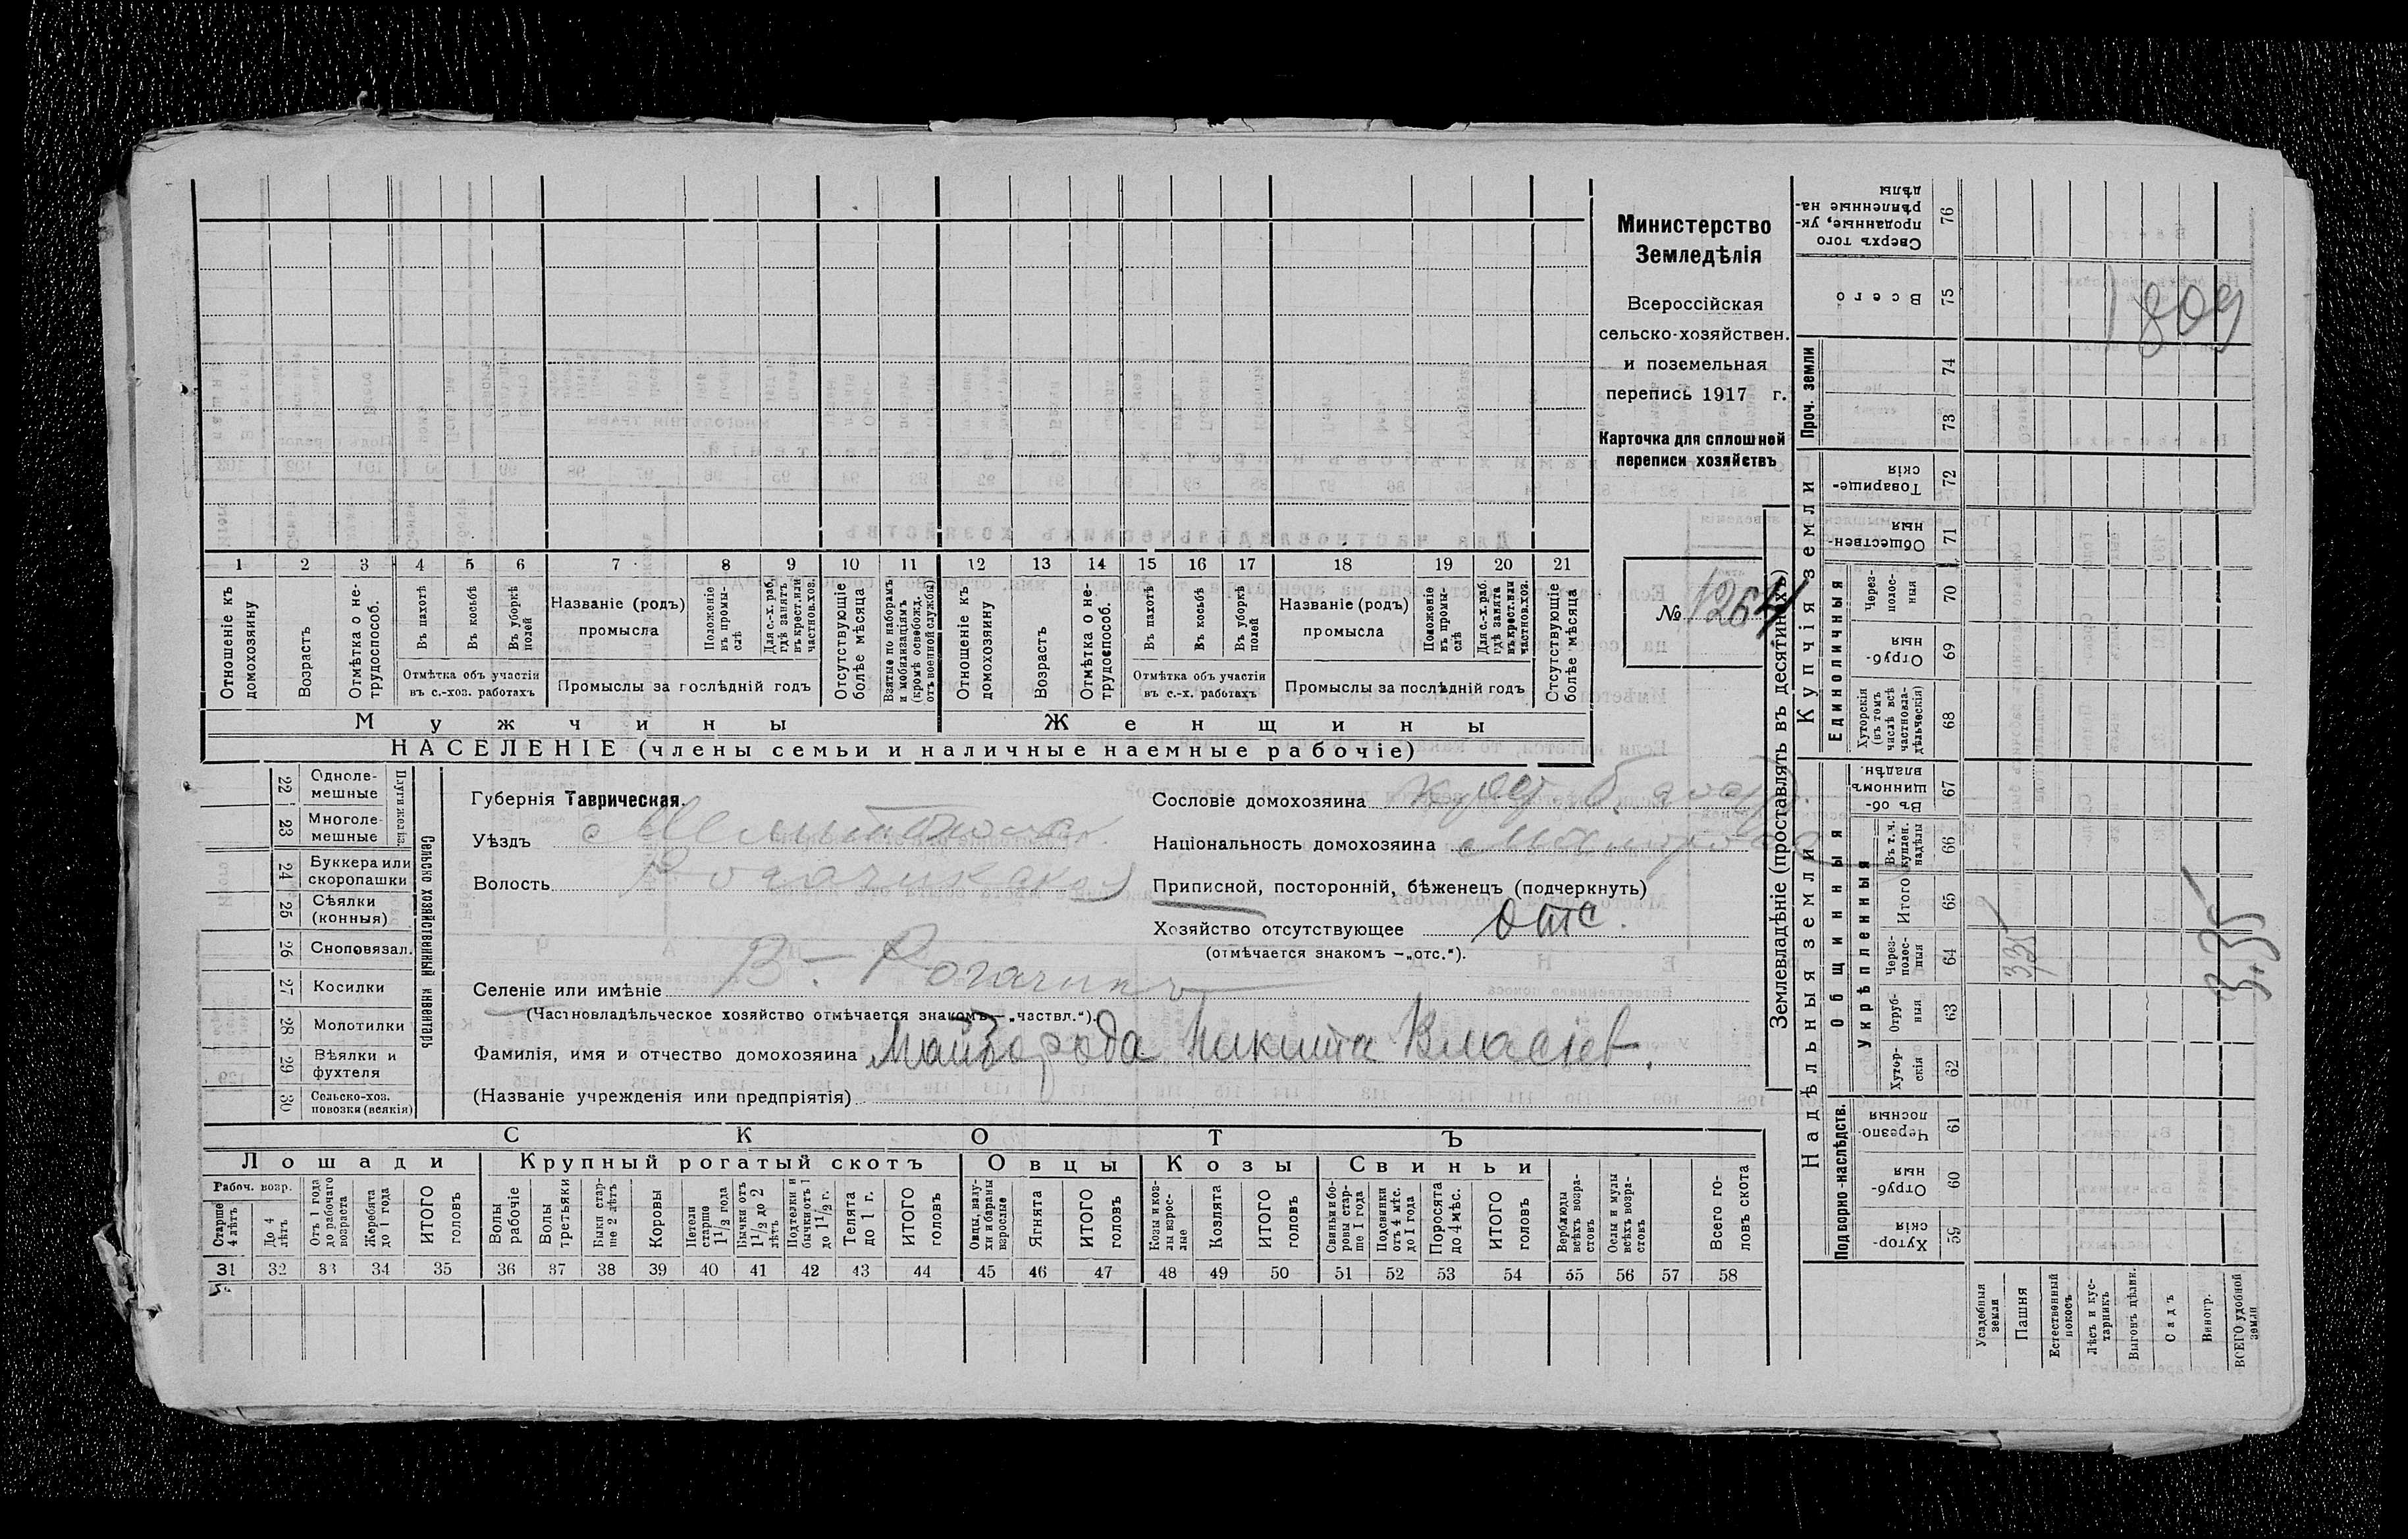 Министерство
Земледѣлія
Всероссійская
сельско-хозяйствен.
и поземельная
перепись 1917 г.
Карточка для сплошной
переписи хозяйствъ
№ 1264
1 2 3 4 5 6 7 8 9 10 11 12 13 14 15 16 17 18 19 20 21
Отношеніе къ домохозяину
Возрастъ
Отмѣтка о не-трудоспособ.
Въ пахотѣ
Въ косьбѣ
Въ уборкѣ полей
Отмѣтка объ участіи
въ с.-хоз. работахъ
Названіе (родъ)
промысла
Положеніе въ промы-слѣ
Для с.-х. раб. гдѣ занятъ въ крест. или частнов. хоз.
Промыслы за послѣдній годъ
Отсутствующіе болѣе мѣсяца
Взятые по наборамъ и мобилизаціямъ (кромѣ освобожд. отъ военной службы)
Отношеніе къ домохозяину
Возрастъ
Отмѣтка о не-трудоспособ.
Въ пахотѣ
Въ косьбѣ
Въ уборкѣ полей
Отмѣтка объ участіи
въ с.-х. работахъ
Названіе (родъ)
промысла
Положеніе въ промы-слѣ
Для с.-х. раб. гдѣ занята въ крест. или частнов. хоз.
Промыслы за послѣдній годъ
Отсутствующіе болѣе мѣсяца
Мужчины Женщины
НАСЕЛЕНІЕ (члены семьи и наличные наемные рабочіе)
Сельско хозяйственный инвентарь
22 Одноле-мешные
23 Многоле-мешные
24 Буккера или скоропашки
25 Сѣялки (конныя)
26 Сноповязал.
27 Косилки
28 Молотилки
29 Вѣялки и фухтеля
30 Сельско-хоз. повозки (всякія)
Губернія Таврическая.
Уѣздъ Мелитопольск.
Волость Рогачикская
Селеніе или имѣніе В-Рогачикъ
(Частновладѣльческое хозяйство отмѣчается знакомъ—„частвл.“).
Фамилія, имя и отчество домохозяина Майборода Никита Власіев.
(Названіе учрежденія или предпріятія)
Сословіе домохозяина
Національность домохозяина
Приписной, посторонній, бѣженецъ (подчеркнуть)
Хозяйство отсутствующее отс.
(отмѣчается знакомъ —„отс.“).
СКОТЪ
Лошади Крупный рогатый скотъ Овцы Козы Свиньи
Рабоч. возр.
Старше 4 лѣтъ
До 4 лѣтъ
Отъ 1 года до рабочаго возраста
Жеребята до 1 года
ИТОГО головъ
Волы рабочіе
Волы третьяки
Быки стар-ше 2 лѣтъ
Коровы
Нетели старше 1 1/2 года
Бычки отъ 1 1/2 до 2 лѣтъ
Подтелки и бычки отъ 1 до 1 1/2 г.
Телята до 1 г.
ИТОГО головъ
Овцы, валу-хи и бараны взрослые
Ягнята
ИТОГО головъ
Козы и коз-лы взрос-лые
Козлята
ИТОГО головъ
Свиньи и бо-ровы стар-ше 1 года
Подсвинки отъ 4 мѣс. до 1 года
Поросята до 4 мѣс.
ИТОГО головъ
Верблюды всѣхъ возра-стовъ
Ослы и мулы всѣхъ возра-стовъ
Всего го-ловъ скота
31 32 33 34 35 36 37 38 39 40 41 42 43 44 45 46 47 48 49 50 51 52 53 54 55 56 57 58
Землевладѣніе (проставлять въ десятинахъ)
Надѣльныя земли Купчія земли Проч. земли
Подворно-наслѣдств.
Общинныя
Укрѣпленныя
Единоличныя
Хутор-скія 59
Отруб-ныя 60
Черезпо-лосныя 61
Хутор-скія 62
Отруб-ныя 63
Через-полос-ныя 64
Итого 65
Въ т. ч. куплен. надѣлы 66
Въ об-щинномъ владѣн. 67
Хуторскія (въ томъ числѣ всѣ частновла-дѣльческія) 68
Отруб-ныя 69
Через-полос-ныя 70
Обществен-ныя 71
Товарище-скія 72
73
74
Всего 75
Сверхъ того проданные, ук-рѣпленные на-дѣлы 76
Усадебныя земли
Пашня
Естественный покосъ
Лѣсъ и кус-тарникъ
Выгонъ дѣлин.
Садъ
Виногр.
ВСЕГО удобной земли
3,35
3,35
1809